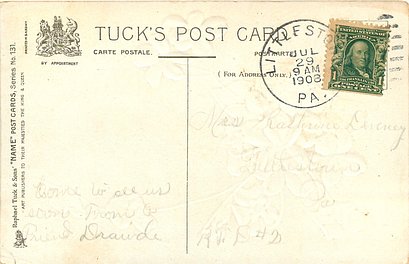 TUCK'S POST CARD
CARTE POSTALE.
POSTKARTE
(For Address Only.)
BY APPOINTMENT
Raphael Tuck & Sons' "NAME" POST CARDS, Series No. 131.
ART PUBLISHERS TO THEIR MAJESTIES THE KING & QUEEN
LITTLESTO
JUL
29
9 AM
1908
PA.
Miss Katherine
Littlestown
Pa
R.F.D 42
Come to see us
soon From a
friend